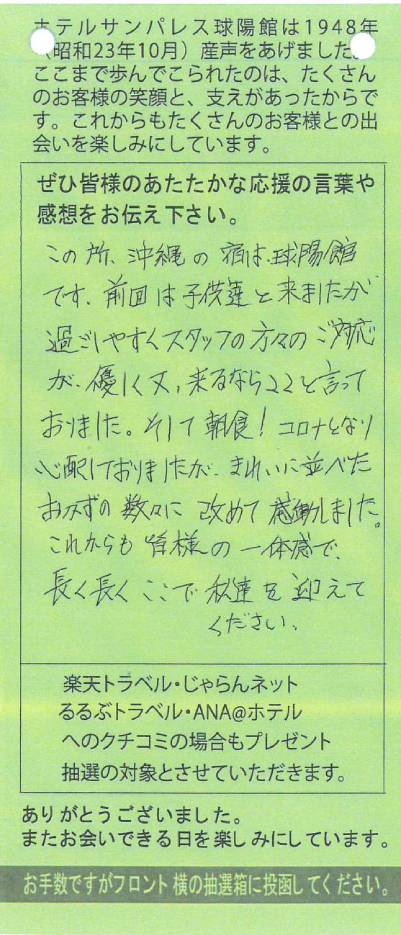 ホテルサンパレス球陽館は1948年
（昭和23年10月）産声をあげました。
ここまで歩んでこられたのは、たくさん
のお客様の笑顔と、支えがあったからで
す。これからもたくさんのお客様との出
会いを楽しみにしています。
ぜひ皆様のあたたかな応援の言葉や
感想をお伝え下さい。
この所、沖縄の宿は、球陽館
です。前回は子供達と来ましたが
過ごしやすくスタッフの方々のご対応
が、優しく又、来るならココと言って
おりました。そして朝食！コロナとなり
心配しておりましたが、きれいに並べた
おかずの数々に改めて感動しました。
これからも皆様の一体感で、
長く長くここで私達を迎えて
ください、
楽天トラベル・じゃらんネット
るるぶトラベル・ANA@ホテル
へのクチコミの場合もプレゼント
抽選の対象とさせていただきます。
ありがとうございました。
またお会いできる日を楽しみにしています。
お手数ですがフロント横の抽選箱に投函してください。